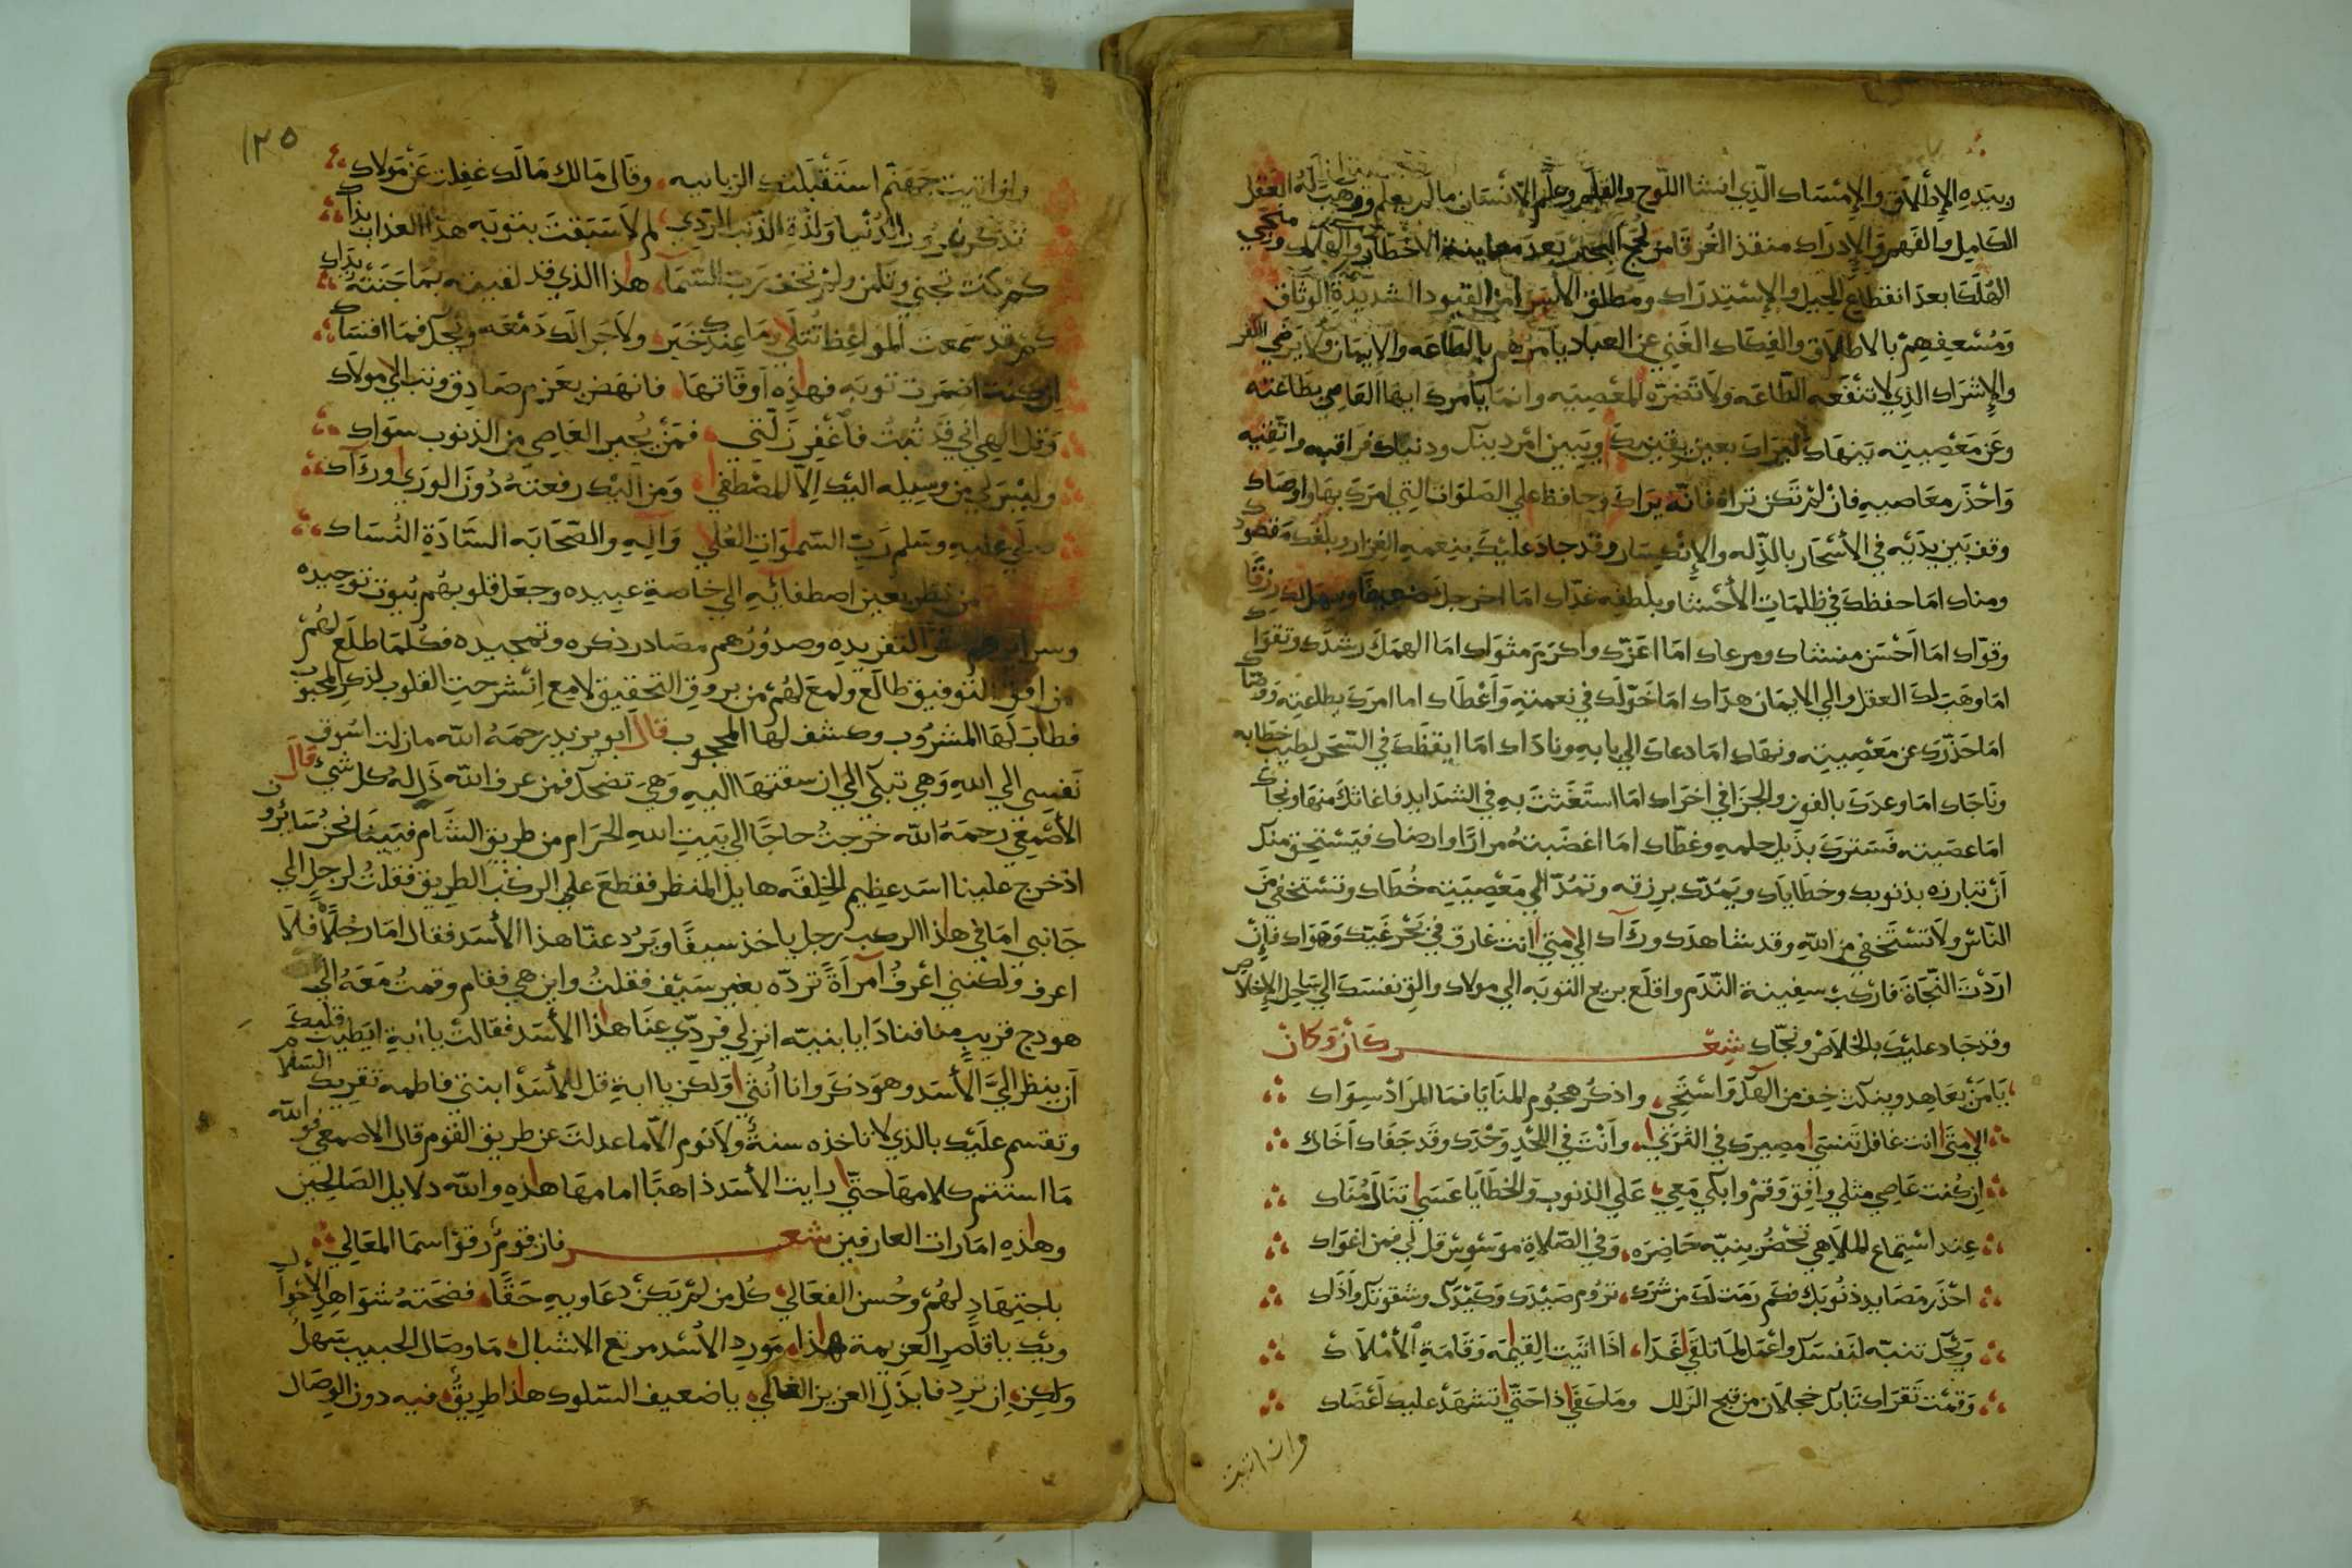 وبيده الإطلاق والإمساك الذي انشا اللوح والقلم وعلم الإنسان مالم يعلم ووهب له العقل
الكامل والفهم والإدراك منقذ الغرقا من لجج البحار بعد معاينة الاخطار والهلاك ومنجي
الهلكا بعد انقطاع الحيل والإستدراك ومطلق الأسرا من القيود الشديدة الوثاق
ومسعفهم بالاطلاق والفكاك الغني عن العباد يامرهم بالطاعه والايمان ولا يرضي الكفر
والإشراك الذي لا تنفعه الطاعه ولا تضره المعصيه وانما يامرك ايها العاصي بطاعته
وعن معصيته ينهاك ليراك بعين يقينك ويبين امر دينك ودنياك فراقبه واتقيه
واحذر معاصيه فان لم تكن تراه فانه يراك وحافظ علي الصلوات التي امرك بها واوصاك
وقف بين يديه في الأسحار بالذله والإنكسار وقد جاد عليك بنعمه الغزار وبلغك مقصودك
ومناك اما حفظك في ظلمات الأحشا وبلطفه غداك اما اخرجك ضعيفا وسهل لك رزقا
وقواك اما احسن منشاك ومرعاك اما اعزك واكرم مثواك اما الهمك رشدك وتقواك
اما وهب لك العقل والي الايمان هداك اما خولك في نعمته واعطاك اما امرك بطاعته ووصاك
اما حذرك عن معصيته ونهاك اما دعاك الي بابه وناداك اما ايقظك في السحر لطيب خطابه
وناجاك اما وعدك بالفوز والجزا في اخراك اما استغثت به في الشدايد فاغاثك منها ونجاك
اما عصيته فسترك بذيل حلمه وغطاك اما اغضبته مرارا وارضاك فيستحق منك
أن تبارزه بذنوبك وخطاياك ويمدك برزقه وتمد الي معصيته خطاك وتستخفي من
الناس ولا تستخفي من الله وقد شاهدك وراك الي متي انت غارق في بحر غيك وهواك فإن
اردت النجاة فاركب سفينة الندم واقلع بريح التوبه الي مولاك والق نفسك الي ساحل الإخلاص
وقد جاد عليك بالخلاص ونجاك شعر كان وكان
يا من يعاهد وينكث خف من الهك واستحي واذكر هجوم المنايا فما المراد سواك
الي متي انت غافل تنسي مصيرك في الثري وانت في اللحد وحدك وقد جفاك اخاك
ان كنت عاصي مثلي وافق وقم وابكي معي علي الذنوب والخطايا عسي تنال مناك
عند استماع الملاهي تحضر بنيه حاضره وفي الصلاة موسوس قل لي فمن اغواك
احذر مصايد ذنوبك فكم رمت لك من شرك تروم صيدك وكيدك وشقوتك واذاك
ويحك تنبه لنفسك واعمل لما تلقي غدا اذا اتيت القيمه وقامة الأملاك
وقمت تقرا كتابك خجلان من قبح الزلل وما كفي ذا حتي تشهد عليك اعضاك
وان اتيت
١٢٥
وان اتيت جهنم استقبلتك الزبانيه وقال مالك مالك غفلت عن مولاك
تذكر غرور الدنيا ولذة الذنب الردي لم لا سبقت بتوبه هذا العذاب بذاك
كم كنت تجني وتامن ولم تخف رب السما هذا الذي قد لقيته بما جنته يداك
كم قد سمعت المواعظ تتلي وما عندك خبر ولا جرا لك دمعه ويحك فما اقساك
ان كنت اضمرت توبه فهذه اوقاتها فانهض بعزم صادق وتب الي مولاك
وقل الهي اني قد تبت فاغفر زلتي فمن يجير العاصي من الذنوب سواك
وليس لي من وسيله اليك الا المصطفي ومن اليك رفعته دون الوري وراك
صلي عليه وسلم رب السموات العلي واله والصحابه السادة النساك
من نظر بعين اصطفائه الي خاصة عبيده وجعل قلوبهم بيوت توحيده
وسرايرهم التفريده وصدورهم مصادر ذكره وتمجيده فكلما طلع لهم
من افق التوفيق طالع ولمع لهم من بروق التحقيق لامع انشرحت القلوب لذكر المحبوب
فطاب لها المشروب وكشف لها المحجوب قال ابو يزيد رحمه الله مازلت اسوق
نفسي الي الله وهي تبكي الي ان سقتها اليه وهي تضحك فمن عرف الله ذل له كل شي قال
الأصمعي رحمه الله خرجت حاجا الي بيت الله الحرام من طريق الشام فبينما نحن سائرون
اذ خرج علينا اسد عظيم الخلقه هايل المنظر فقطع علي الركب الطريق فقلت لرجل الي
جانبي اما في هذا الركب رجل ياخذ سيفا ويرد عنا هذا الأسد فقال اما رجلا فلا
اعرف ولكنني اعرف امراة ترده بغير سيف فقلت واين هي فقام وقمت معه الي
هودج قريب منا فنادا يا بنيه انزلي فردي عنا هذا الأسد فقالت يا ابة ايطيب قلبك
أن ينظر الي الأسد وهو ذكر وانا انثي ولكن يا ابة قل للأسد ابنتي فاطمه تقريك السلام
وتقسم عليك بالذي لا تاخذه سنة ولا نوم الا ما عدلت عن طريق القوم قال الاصمعي فوالله
ما استتم كلامها حتي رايت الأسد ذاهبا امامها هذه والله دلايل الصالحين
وهذه امارات العارفين شعر فاز قوم رقوا سما المعالي
باجتهاد لهم وحسن الفعالي كل من لم يكن دعاويه حقا فضحته شواهد الأحوال
ويك يا قاصر العزيمة هذا مورد الأسد مرتع الاشبال ما وصال الحبيب سهل
ولكن ان ترد فابذل العزيز الغالي يا ضعيف السلوك هذا طريق فيه دون الوصال